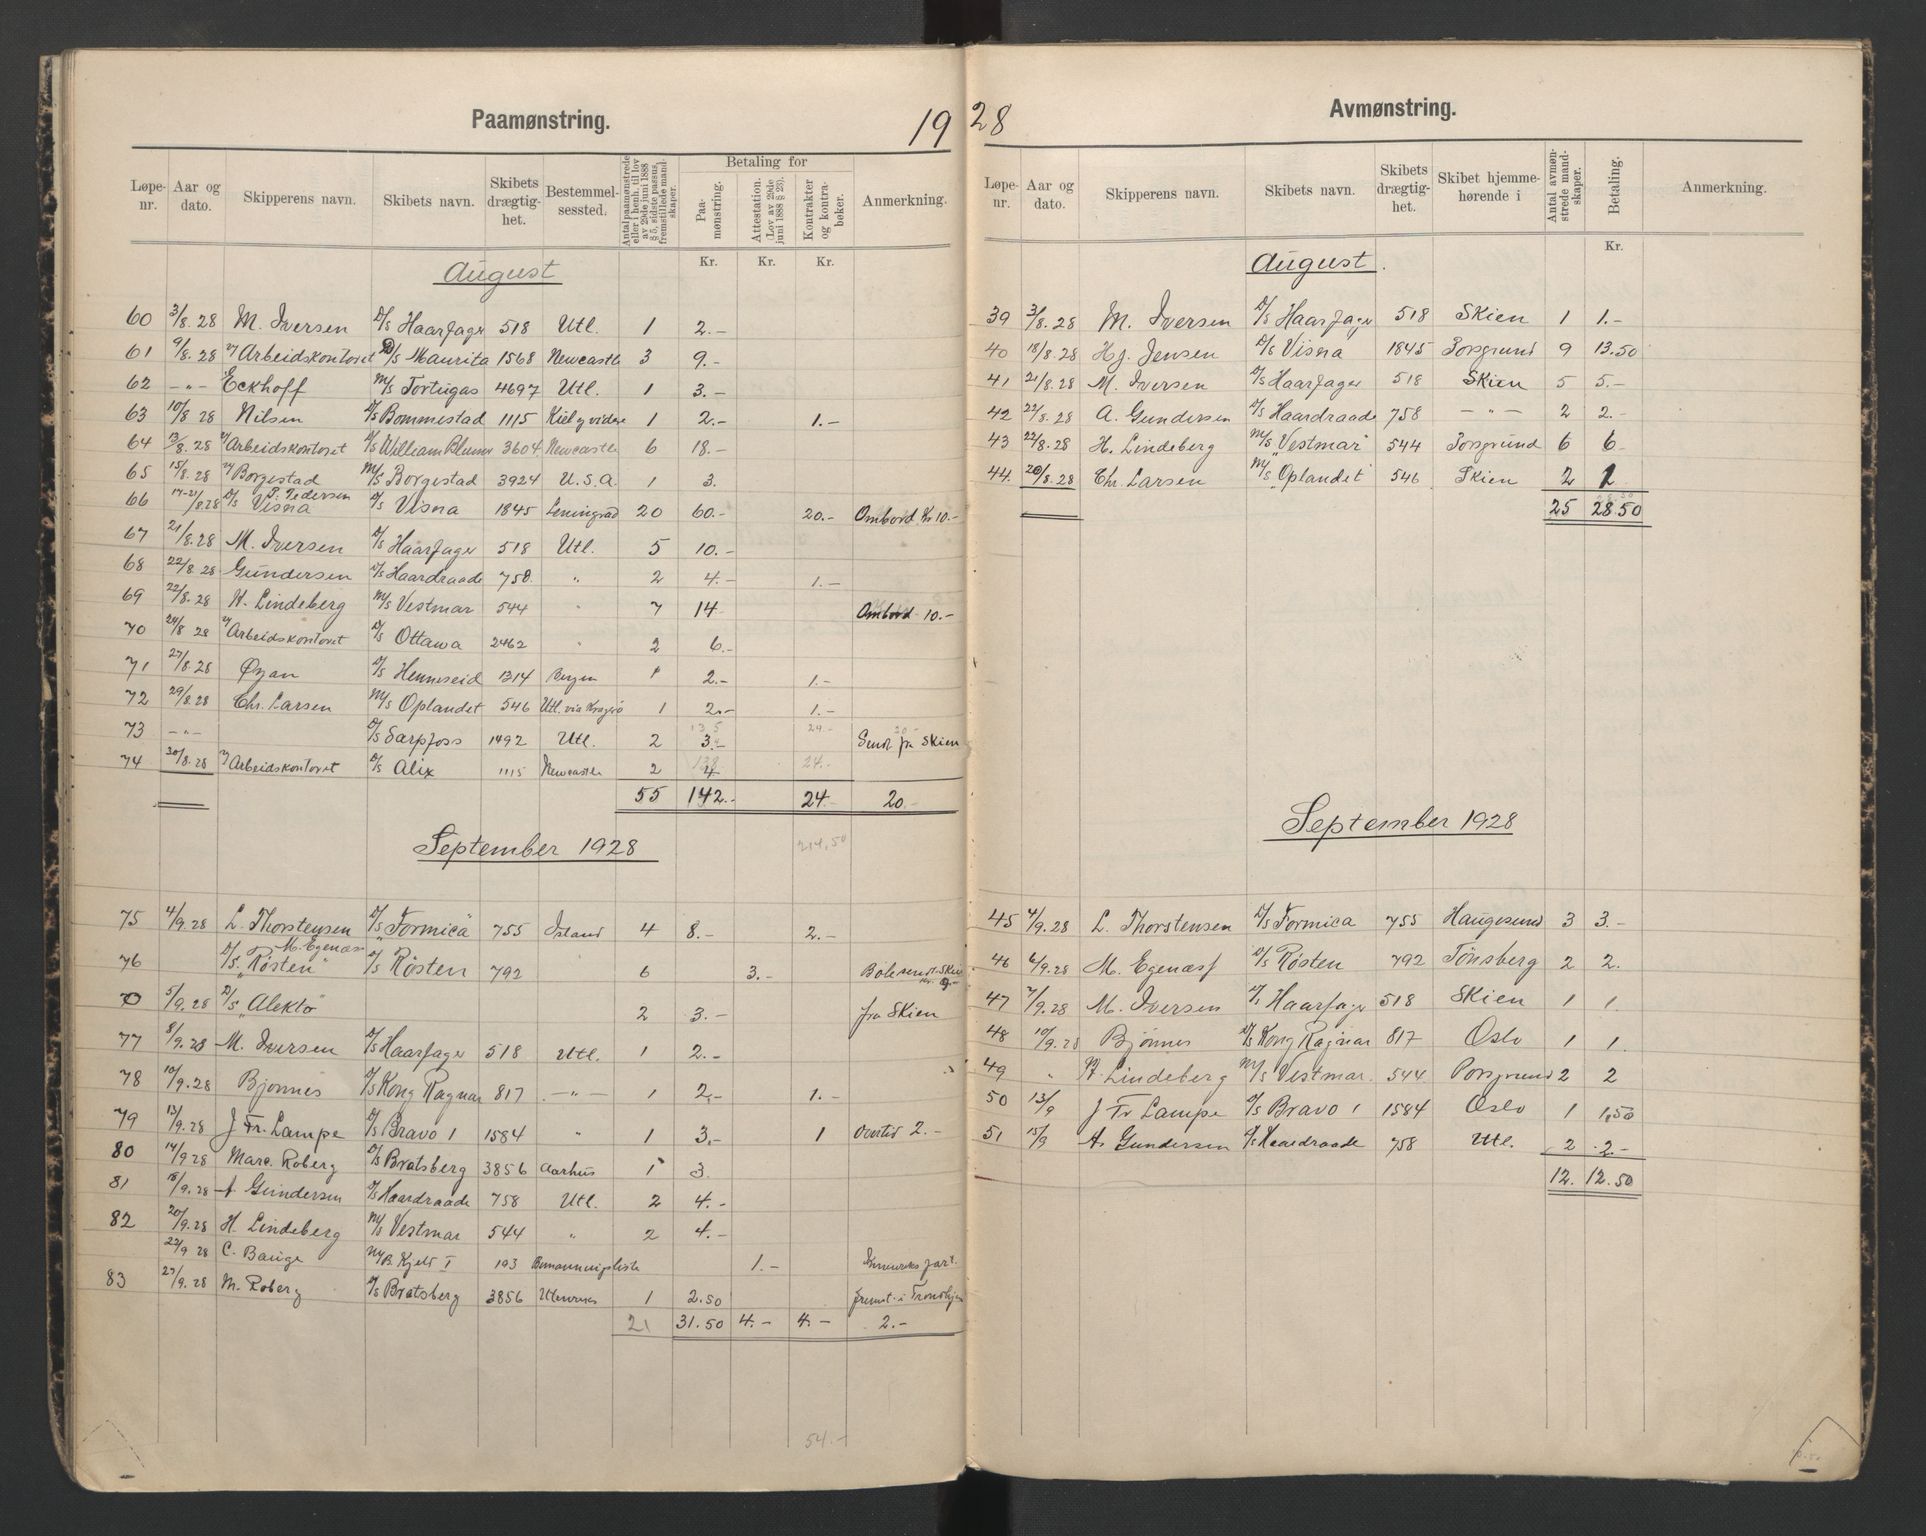 Paamønstring.
19
Løpe-nr. Aar og dato. Skipperens navn. Skibets navn. Skibets drægtighet. Bestemmelsessted. Antal paamønstrede eller i henh. til lov av 29de juni 1888 § 5, sidste passus, fremstillede mandskaper. Betaling for Paamønstring. Attestation. (Lov av 29de juni 1888 § 23). Kontrakter og kontrabøker. Anmerkning.
Kr. Kr. Kr.
August
60 3/8.28 M. Iversen D/s Haarfager 518 Utl. 1 2.-
61 9/8.28 v/ Arbeidskontoret D/s Maurita 1568 Newcastle 3 9.-
62 -"- Eckhoff M/s Tortugas 4697 Utl. 1 3.-
63 10/8 28 Nilsen D/s Bommestad 1115 Kiel og videre 1 2.- 1.-
64 13/8.28 v/ Arbeidskontoret D/s William Blumer 3604 Newcastle 6 18.-
65 15/8.28 v/ Borgestad M/s Borgestad 3924 U.S.A. 1 3.
66 17-21/8.28 D/s Visna T. Pedersen D/s Visna 1845 Leningrad 20 60.- 20.- Ombord Kr 10.-
67 21/8.28 M. Iversen D/s Haarfager 518 Utl. 5 10.-
68 22/8.28 Gundersen D/s Haardraade 758 " 2 4.- 1.-
69 22/8.28 H. Lindeberg M/s Vestmar 544 " 7 14 Ombord 10.-
70 24/8 28 v/ Arbeidskontoret D/s Ottawa 2462 " 2 6.-
71 27/8.28 Øyan D/s Henneseid 1314 Bergen 1 2.- 1.-
72 29/8.28 Chr. Larsen M/s Oplandet 546 Utl. via Kragerø 1 2.- 1.-
73 -"- D/s Sarpfoss 1492 Utl. 2 3.- Sendt fra Skien
74 30/8.28 v/ Arbeidskontoret D/s Alix 1115 Newcastle 2 4
55 142.- 24.- 20.-
September 1928
214,50
75 4/9.28 L. Thorstensen D/s "Formica" 755 Island 4 8.- 2.-
76 D/s. "Røsten" M. Egenæs D/s Røsten 792 6 3.-
70 5/9.28 D/s "Alekto" 2 3.- fra Skien
77 8/9.28 M. Iversen D/s Haarfager 518 Utl. 1 2.-
78 10/9.28 Bjønnes D/s Kong Ragnar 817 -"- 1 2.- 1.-
79 13/9.28 J Fr. Lampe D/s Bravo 1 1584 " 1 3.- 1 overtid 2.-
80 14/9 28 Marc. Roberg D/s Bratsberg 3856 Aarhus 1 3.
81 15/9.28 A Gundersen D/s Haardraade 758 Utl. 2 4.-
82 20/9.28 H. Lindeberg M/s Vestmar 544 " 2 4.-
22/9 28 C. Bauge M/B. Kjell I 193 Bemanningsliste 1.- Innenriks fart.
83 27/9.28 M. Roberg D/s Bratsberg 3856 Utenriks 1 2.50 fremst. i Trondhjem
21 31.50 4.- 4.- 2.-
54.-
28
Avmønstring.
Løpe-nr. Aar og dato. Skipperens navn. Skibets navn. Skibets drægtighet. Skibet hjemmehørende i Antal avmønstrede mandskaper. Betaling. Anmerkning.
Kr.
August.
39 3/8.28 M. Iversen D/s Haarfager 518 Skien 1 1.-
40 18/8.28 Hj. Jensen D/s Visna 1845 Porsgrund 9 13.50
41 21/8.28 M. Iversen D/s Haarfager 518 Skien 5 5.-
42 22/8.28 A. Gundersen D/s Haardraade 758 -"- 2 2.-
43 22/8.28 H. Lindeberg M/s "Vestmar" 544 Porsgrund 6 6.
44. 29/8.28 Chr. Larsen M/s "Oplandet" 546 Skien 2 1
25 28.50
September 1928
45 4/9.28 L. Thorstensen D/s Formica 755 Haugesund 3 3.-
46 6/9.28 M. Egenæs D/s Røsten 792 Tønsberg 2 2.
47 7/9.28 M. Iversen D/s Haarfager 518 Skien 1 1.
48 10/9.28 Bjønnes D/s Kong Ragnar 817 Oslo 1 1.
49 " H. Lindeberg M/s Vestmar. 544 Porsgrund 2 2
50 13/9 J Fr Lampe D/s Bravo 1 1584 Oslo 1 1,50
51 15/9 A. Gundersen D/s Haardraade 758 Utl. 2 2.-
12. 12.50